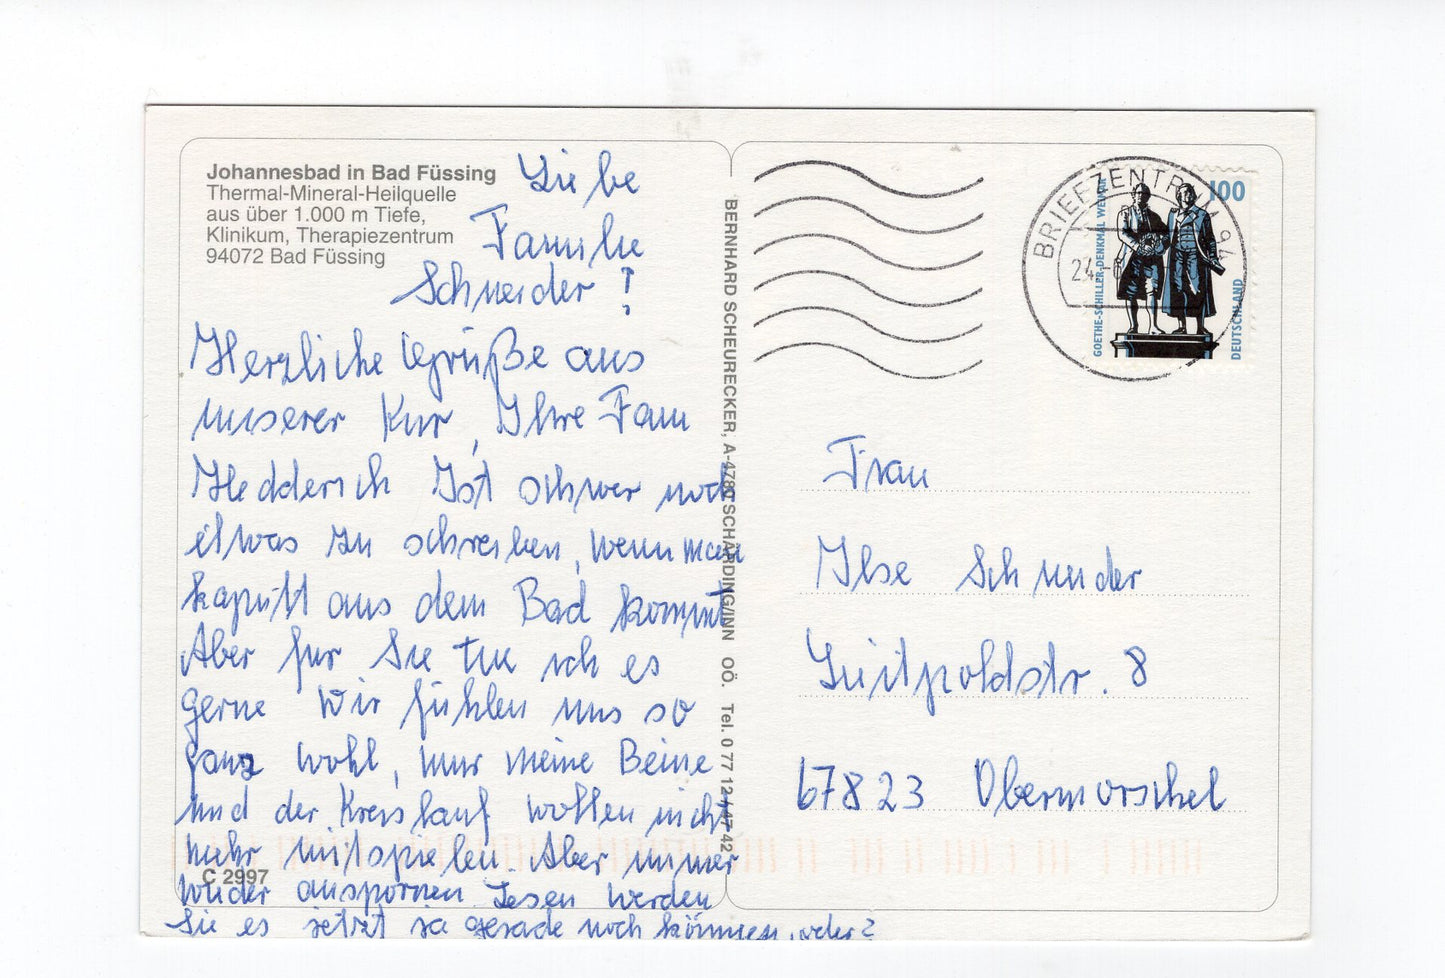 Johannesbad in Bad Füssing
Thermal-Mineral-Heilquelle
aus über 1.000 m Tiefe,
Klinikum, Therapiezentrum
94072 Bad Füssing
Liebe
Familie
Schneider!
Herzliche Grüße aus
unserer Kur, Ihre Fam
Hedderich Ist schwer noch
etwas zu schreiben, wenn man
kaputt aus dem Bad kommt
Aber für Sie tue ich es
gerne Wir fühlen uns so
ganz wohl, nur meine Beine
und der Kreislauf wollen nicht
mehr mitspielen. Aber immer
wieder anspornen. Lesen werden
Sie es jetzt ja gerade noch können, oder?
C 2997
BERNHARD SCHEURECKER, A-4780 SCHÄRDING/INN OÖ. Tel. 0 77 12 / 47 42
BRIEFZENTRUM 94
24.-6
GOETHE-SCHILLER-DENKMAL WEIMAR
100
DEUTSCHLAND
Frau
Ilse Schneider
Luitpoldstr. 8
67823 Obermoschel